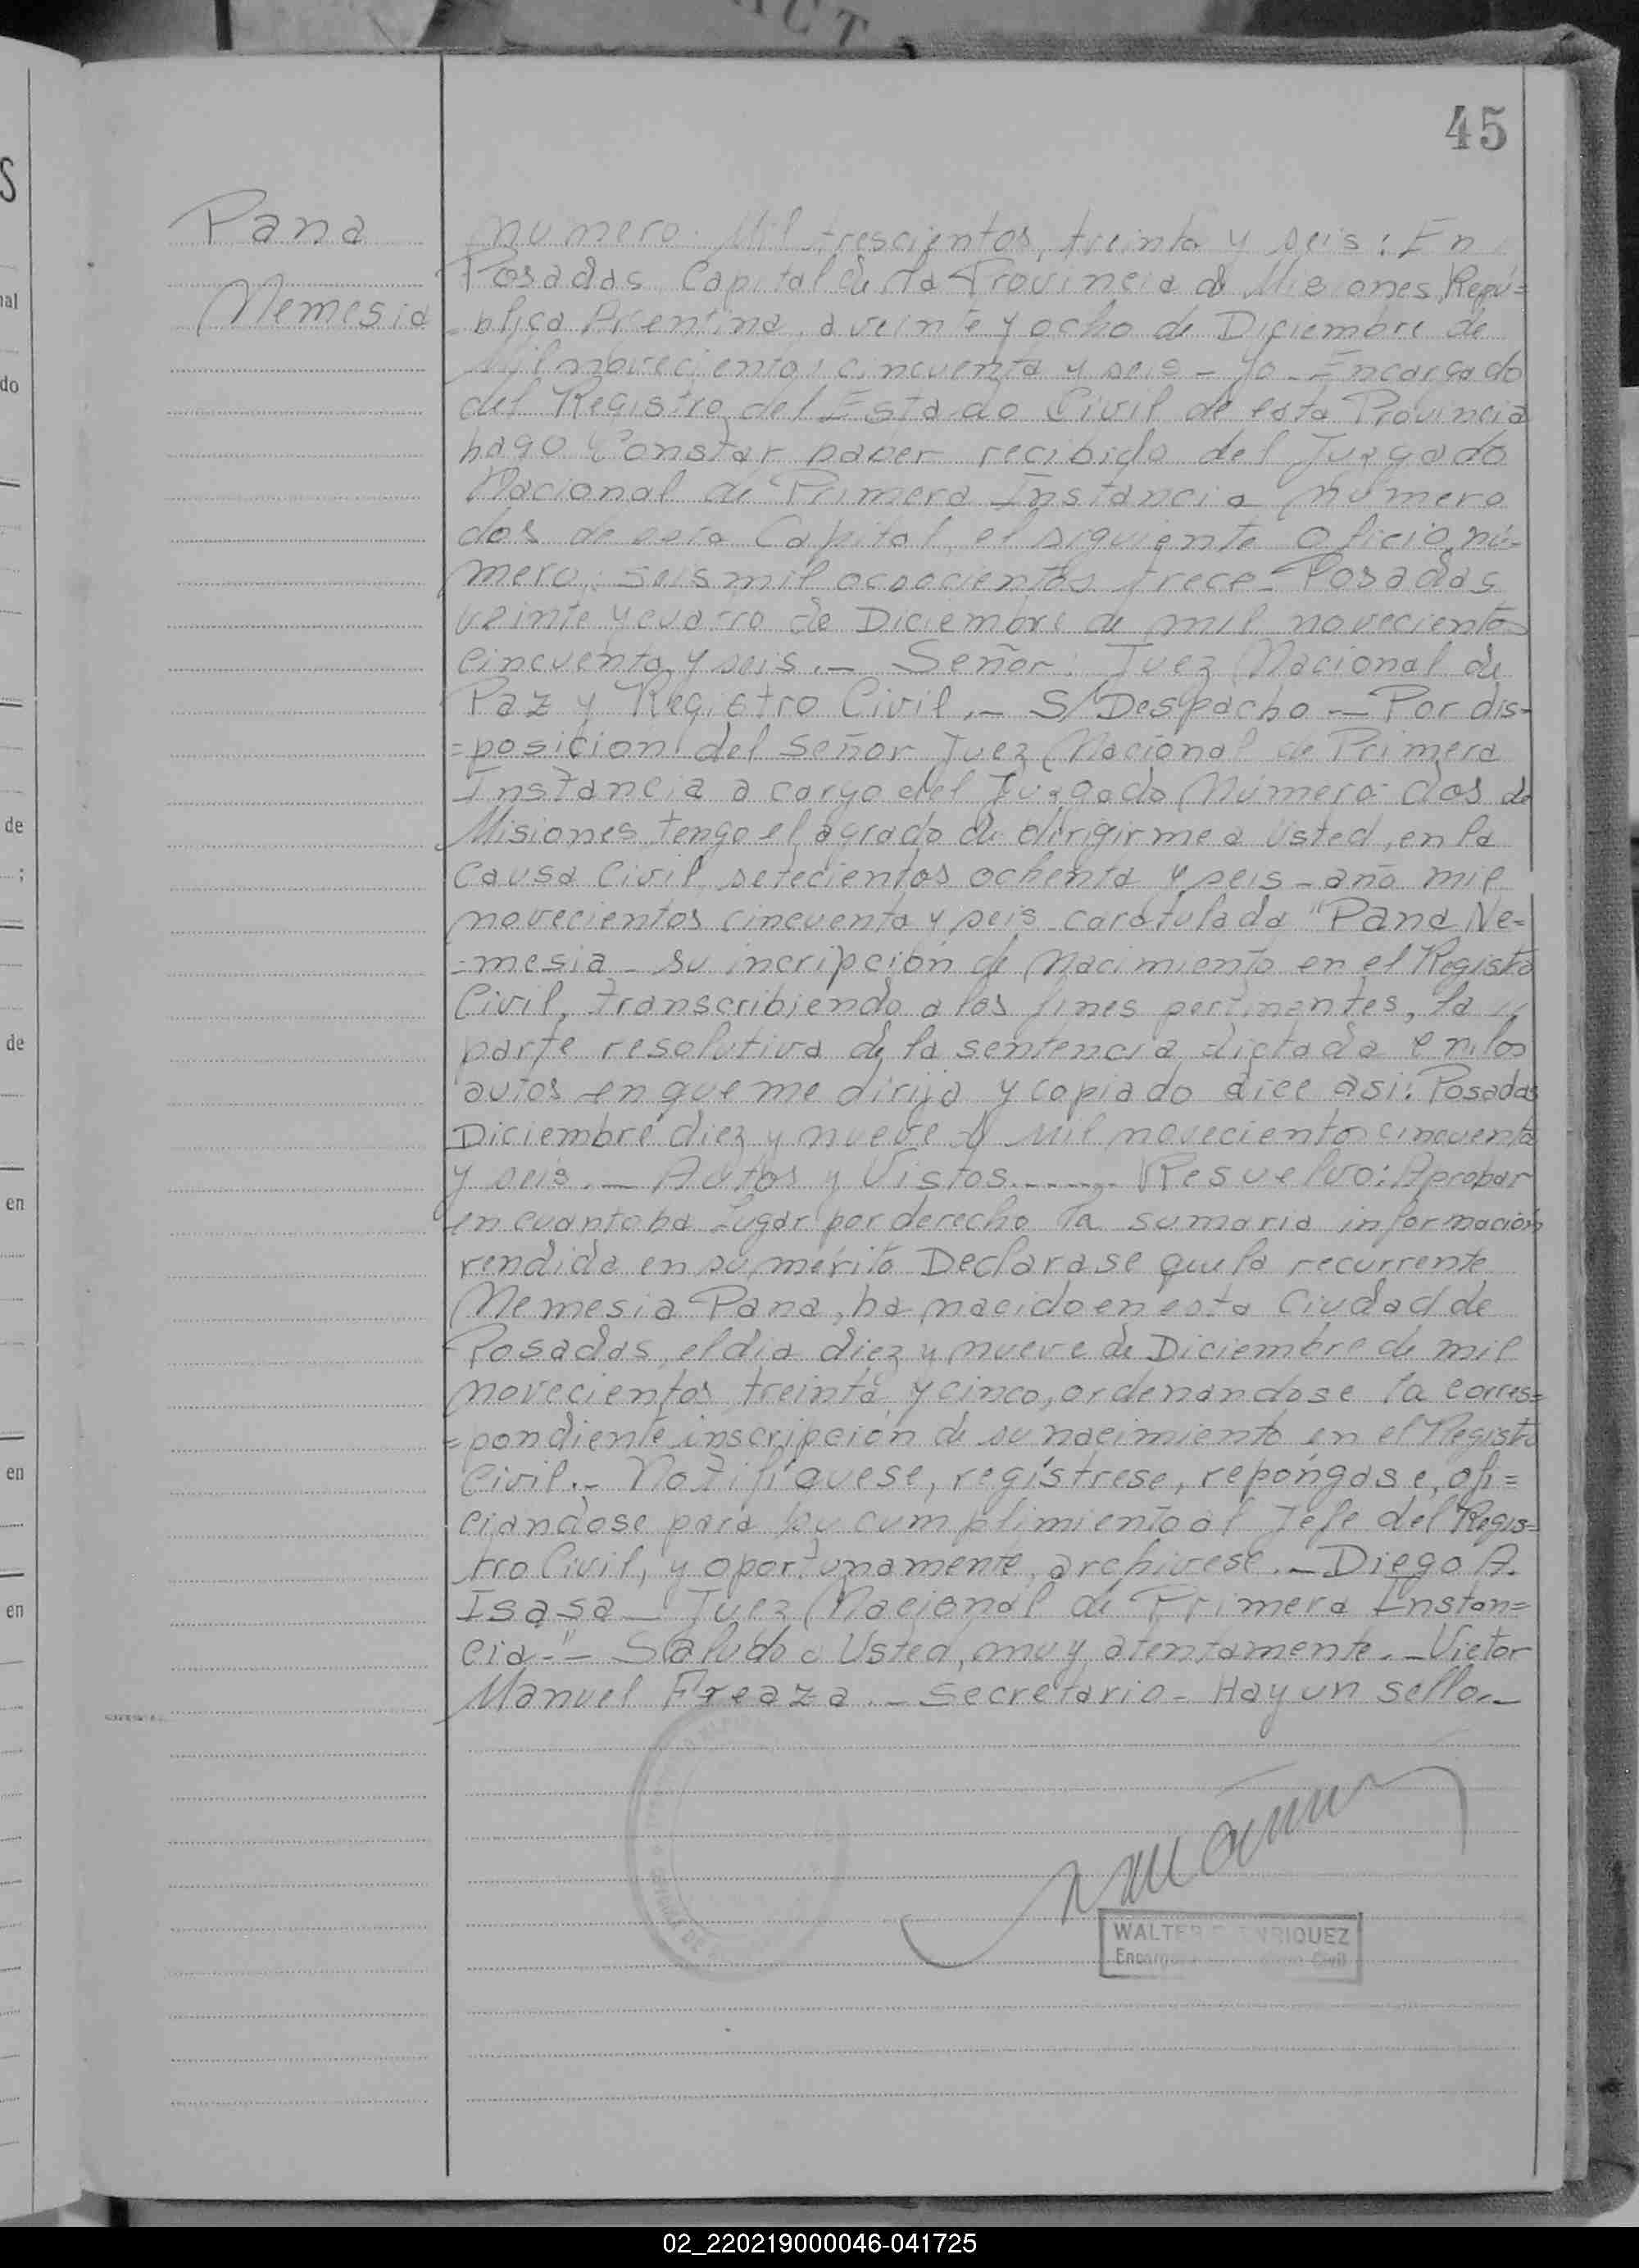 45
Pana
Nemesia
Numero: Mil trescientos, treinta y seis: En
Posadas, Capital de la Provincia de Misiones, Repú=
=blica Argentina, a veinte y ocho de Diciembre de
Mil novecientos cincuenta y seis - Yo - Encargado
del Registro del Estado Civil de esta Provincia
hago Constar haber recibido del Juzgado
Nacional de Primera Instancia número
dos de esta Capital, el siguiente oficio nú=
mero: seis mil ochocientos trece - Posadas
veinte y cuatro de Diciembre de mil novecientos
cincuenta y seis. — Señor: Juez Nacional de
Paz y Registro Civil. — S/Despacho — Por dis-
=posicion del Señor Juez Nacional de Primera
Instancia a cargo del Juzgado Número dos de
Misiones, tengo el agrado de dirigirme a Usted, en la
causa Civil setecientos ochenta y seis - año mil
novecientos cincuenta y seis caratulada "Pana Ne=
=mesia - su incripción de Nacimiento en el Registro
Civil, transcribiendo a los fines pertinentes, la
parte resolutiva de la sentencia dictada en los
autos en que me dirijo y copiado dice asi: Posadas
Diciembre diez y nueve de Mil novecientos cincuenta
y seis. — Autos y Vistos....... Resuelvo: Aprobar
en cuanto ha Lugar por derecho la sumaria información
rendida en su mérito Declarase que la recurrente
Nemesia Pana, ha nacido en esta Ciudad de
Posadas, el dia diez y nueve de Diciembre de mil
novecientos treinta y cinco, ordenandose la corres=
=pondiente inscripción de su nacimiento en el Registro
Civil. - Notifíquese, regístrese, repóngase, ofi=
ciandose para su cumplimiento al Jefe del Regis=
tro Civil, y oportunamente, archivese. — Diego A.
Isasa — Juez Nacional de Primera Instan=
cia." — Saludo a Usted, muy atentamente. — Victor
Manuel Freaza. — Secretario - Hay un sello. —
WALTER ENRIQUEZ
Civil
02_220219000046-041725